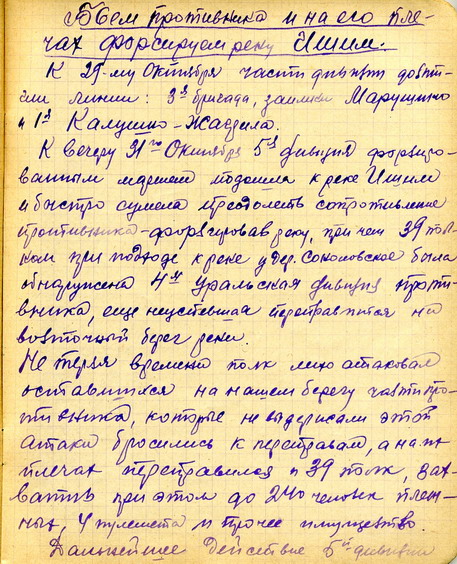 Бьем противника и на его пле-
чах форсируем реку Ишим.
К 29-му Октября части дивизии достиг-
ли линии: 3я бригада, заимки Марушино
и 1я Калушно-
К вечеру 31го Октября 5я дивизия форсиро-
ванным маршем подошла к реке Ишим
и быстро сумела преодолеть сопротивление
противника форсировав реку, при чем 39 пол-
ком при подходе к реке у дер. Соколовское была
обнаружена 4я Уральская дивизия проти-
вника, еще неуспевшая переправится на
восточный берег реки.
Не теряя времени полк лихо атаковал
оставшихся на нашем берегу части про-
тивника, которые не выдержали этой
атаки бросились к переправам, а на их
плечах переправился и 39 полк, зах-
ватив при этом до 240 человек плен-
ных, 4 пулемета и прочее имущество.
Дальнейшее действие 5й дивизии